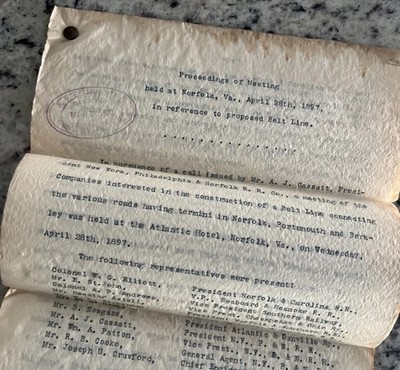 Proceedings of Meeting
held at Norfolk, Va., April 28th, 1897,
in reference to proposed Belt Line.
. . . . . . . . . . . . . .
In pursuance of a call issued by Mr. A. J. Cassatt, Presi-
dent New York, Philadelphia & Norfolk R. R. Co., a meeting of the
Companies interested in the construction of a Belt Line connecting
the various roads having termini in Norfolk, Portsmouth and Berk-
ley was held at the Atlantic Hotel, Norfolk, Va., on Wednesday,
April 28th, 1897.
The following representatives were present:
Colonel W. G. Elliott, President Norfolk & Carolina R.R.,
Mr. E. St.John, V.P., Seaboard & Roanoke R. R.,
Colonel A. B. Andrews, Vice President Southern Railway,
Vice Prest. Chesapeake & Ohio
Mr. Newgass, President Atlantic & Danville R.
Mr. A. J. Cassatt, President N.Y., P. & N. R. R.,
Mr. Wm. A. Patton, Vice Prest. N.Y., P. & N. R. R.,
Mr. R. B. Cooke, General Agent, N.Y., P. & N.
Mr. Joseph U. Crawford, Chief Eng